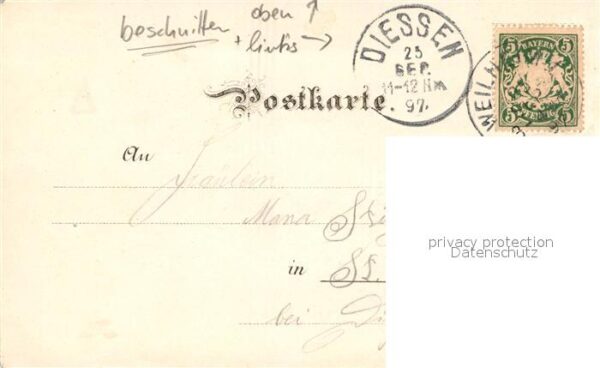 beschnitten oben ↑
+ links →
DIESSEN
25
SEP.
11-12 Nm
97.
WEILH
BAYERN
5 5
5 5
Postkarte
An
Fräulein
in
St.
bei
privacy protection
Datenschutz